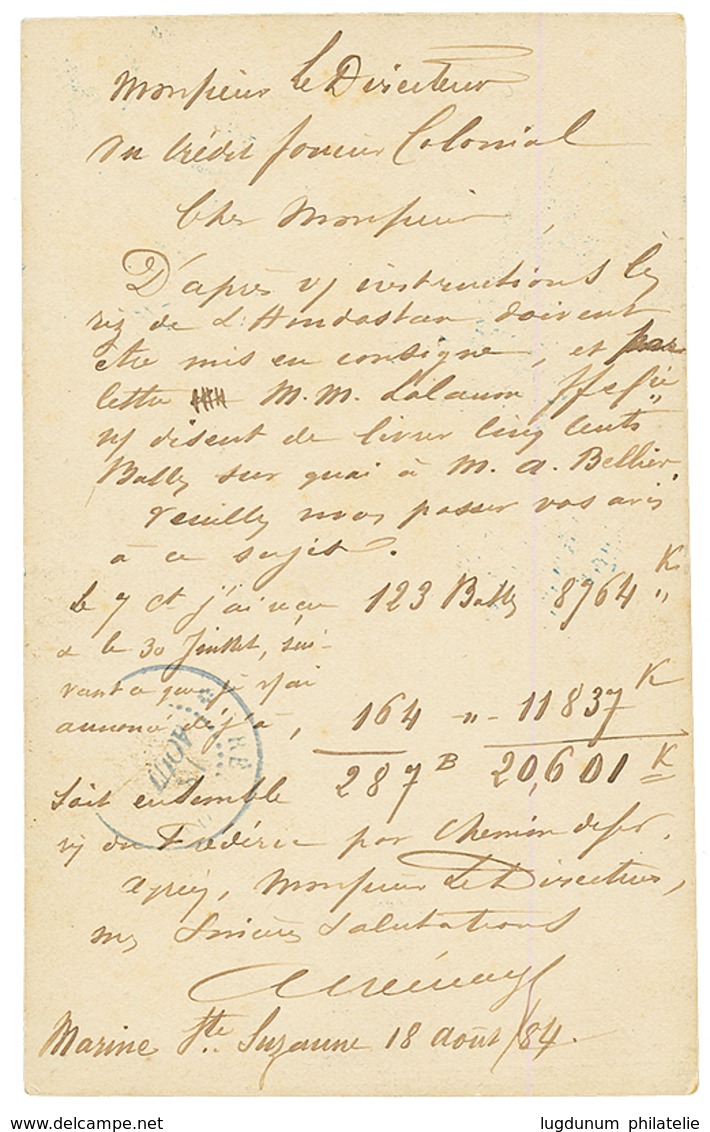 Monsieur Le Directeur
du Crédit foncier Colonial
Cher Monsieur,
D'après vs instructions les
riz de L'Hindostan doivent
etre mis en consigne, et par
lettre M. M. Lalanne
vs disent de livrer Cinq Cents
Balles sur quai à M. A. Bellier.
Veuillez nous passer vos avis
à ce sujet.
Le 7 ct j'ai reçu 123 Balles 8764 K
& le 30 Juillet, sui-
vant ce que je vs ai
annoncé déjà, 164 " 11837 K
287 B 20,601 K
Soit ensemble
riz du Frédéric par Chemin de fer.
Agréez, Monsieur Le Directeur,
mes Sincères Salutations
Marine Ste Suzanne 18 août /84.
AOUT
RE
lugdunum philatelie